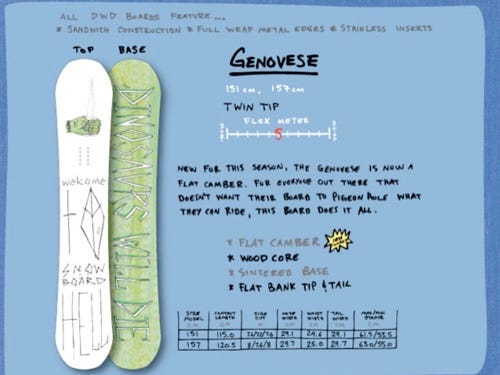 ALL DWD BOARDS FEATURE...
* SANDWICH CONSTRUCTION * FULL WRAP METAL EDGES * STAINLESS INSERTS
TOP BASE
GENOVESE
151 cm, 157 cm
TWIN TIP
FLEX METER
5
welcome
TO
SNOW
BOARD
HELL
DINOSAURS WILL DIE
NEW FOR THIS SEASON, THE GENOVESE IS NOW A
FLAT CAMBER. FOR EVERYONE OUT THERE THAT
DOESN'T WANT THEIR BOARD TO PIGEON HOLE WHAT
THEY CAN RIDE, THIS BOARD DOES IT ALL.
* FLAT CAMBER
* WOOD CORE
* SINTERED BASE
* FLAT BANK TIP & TAIL
SIZE MODEL CONTACT LENGTH SIDE CUT NOSE WIDTH WAIST WIDTH TAIL WIDTH MAX/MIN STANCE
151 115.0 29.1 24.6 29.1 61.5/53.5
157 120.5 8/7.6/8 29.7 25.0 29.7 63.0/55.0